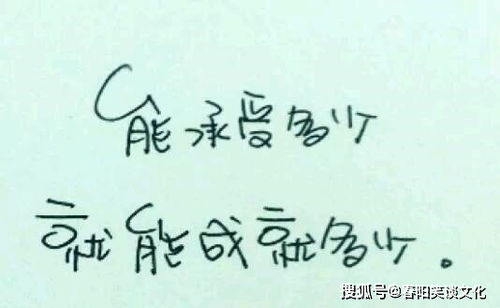 能承受多少
就能成就多少。
搜狐号@春阳笑谈文化